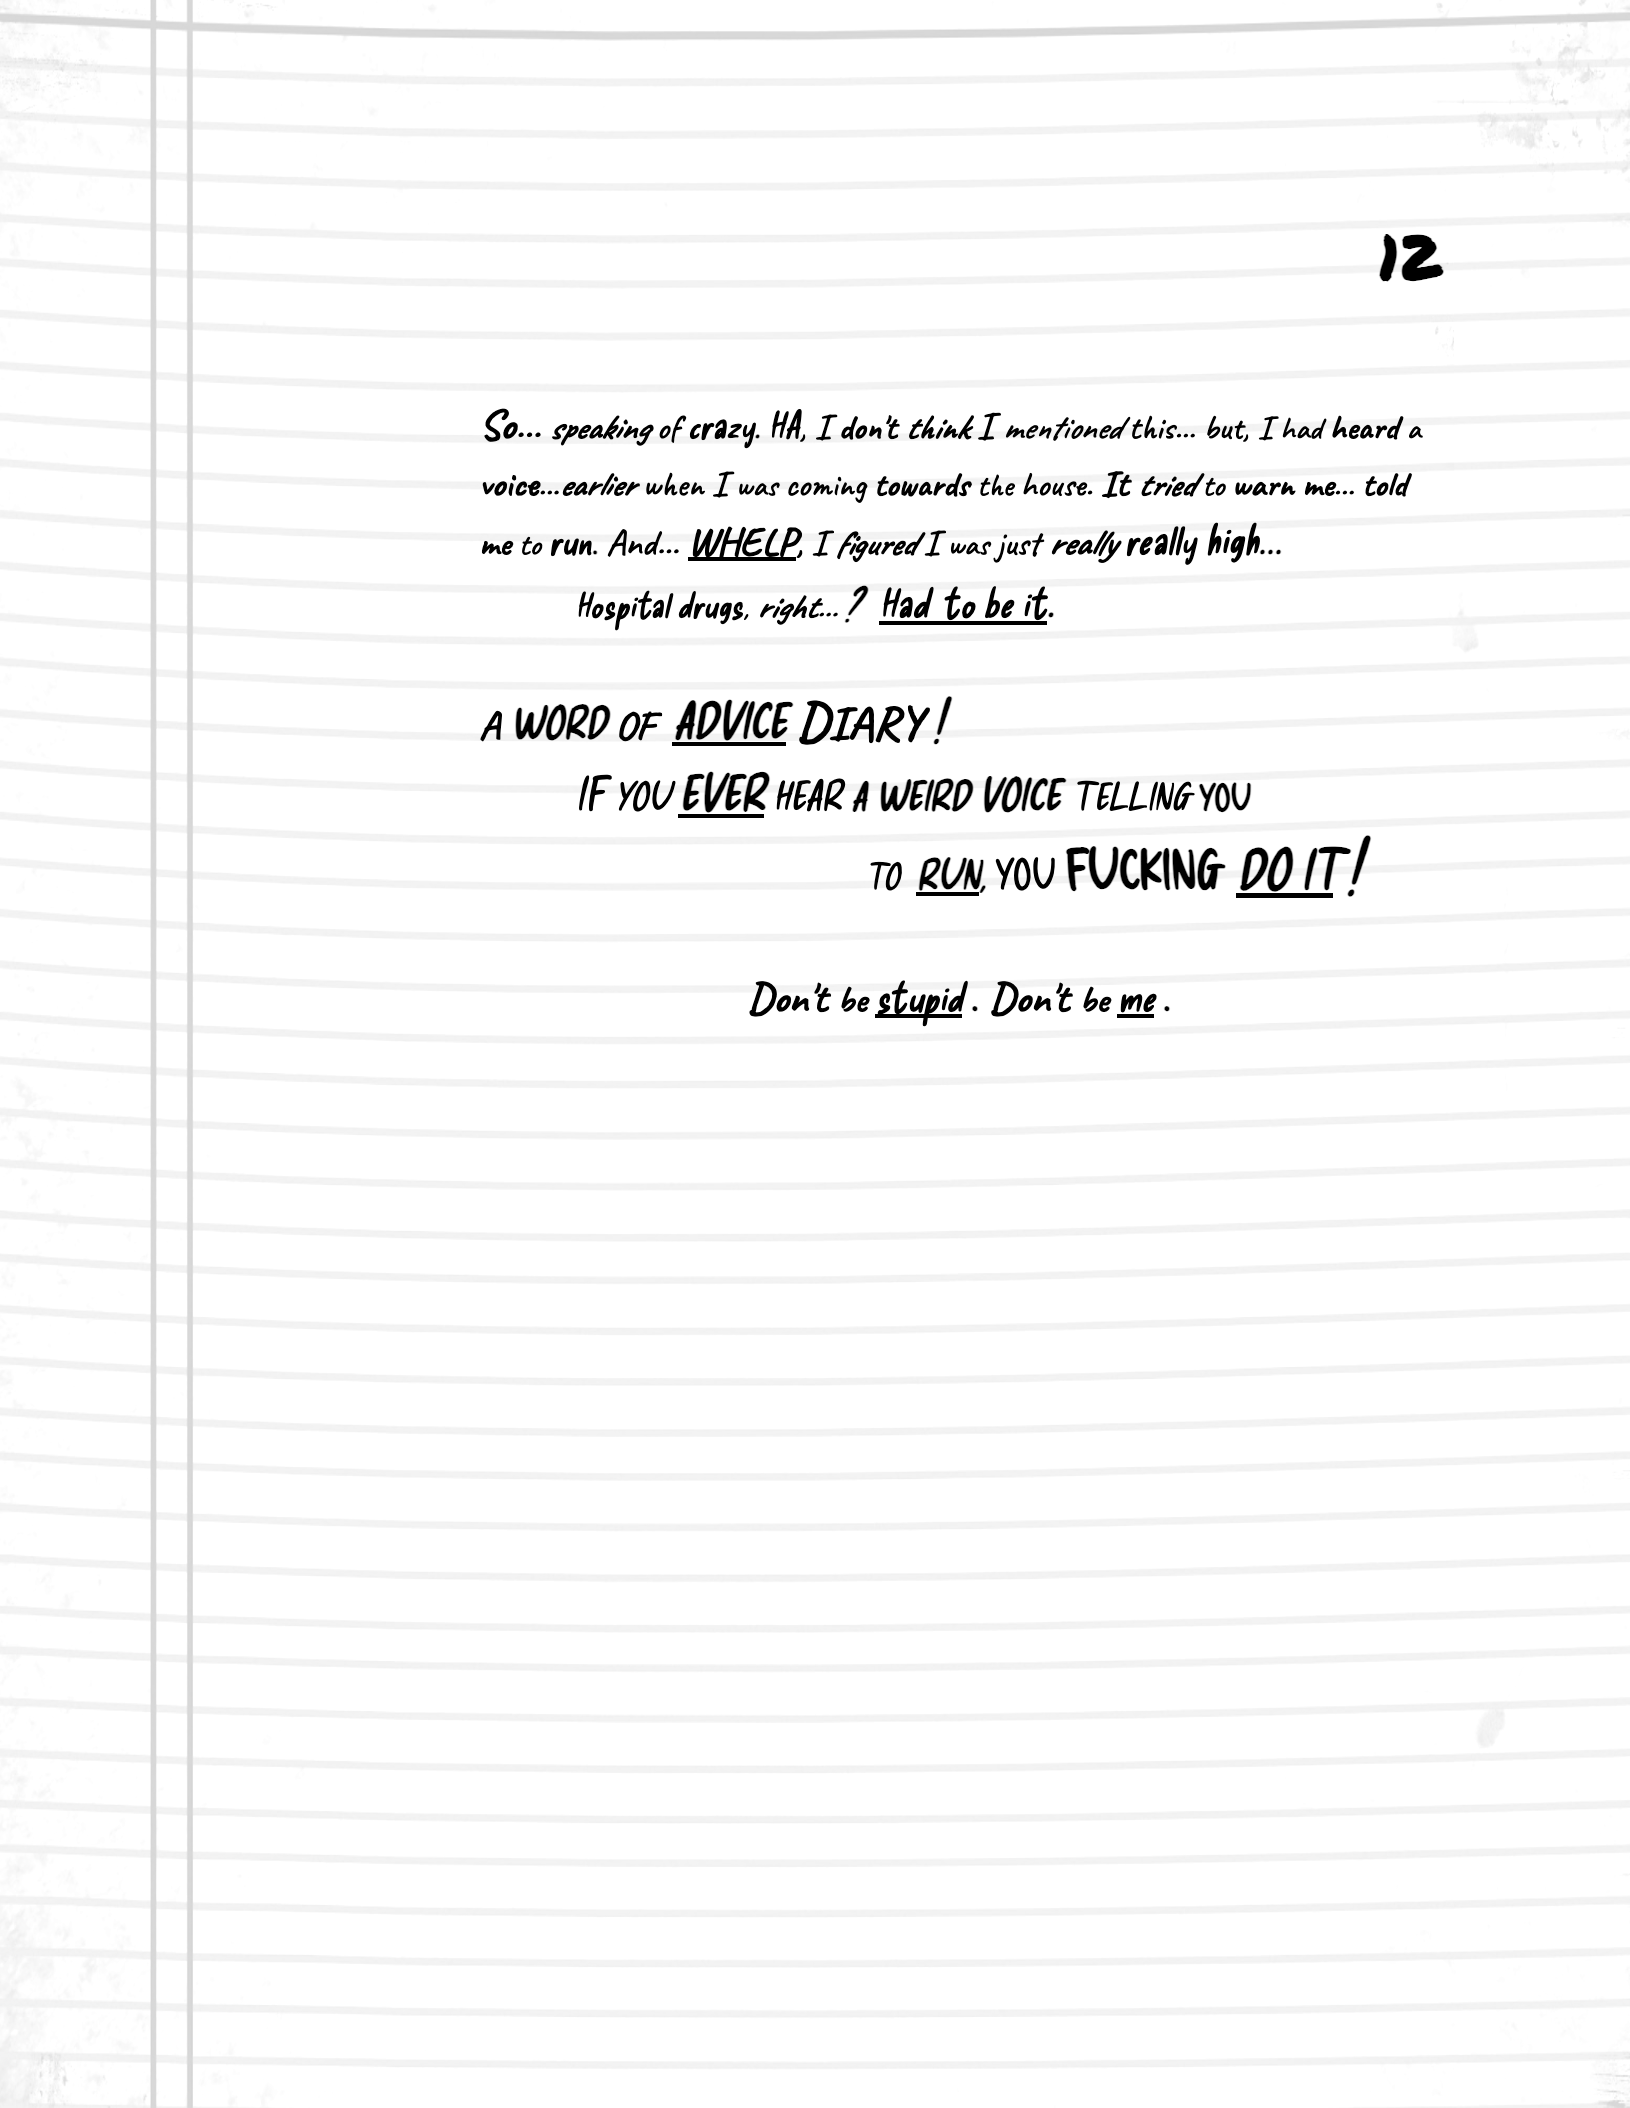 12
So... speaking of crazy. HA, I don't think I mentioned this... but, I had heard a
voice...earlier when I was coming towards the house. It tried to warn me... told
me to run. And... WHELP, I figured I was just really really high...
Hospital drugs, right...? Had to be it.
A WORD OF ADVICE DIARY!
IF YOU EVER HEAR A WEIRD VOICE TELLING YOU
TO RUN, YOU FUCKING DO IT!
Don't be stupid. Don't be me.